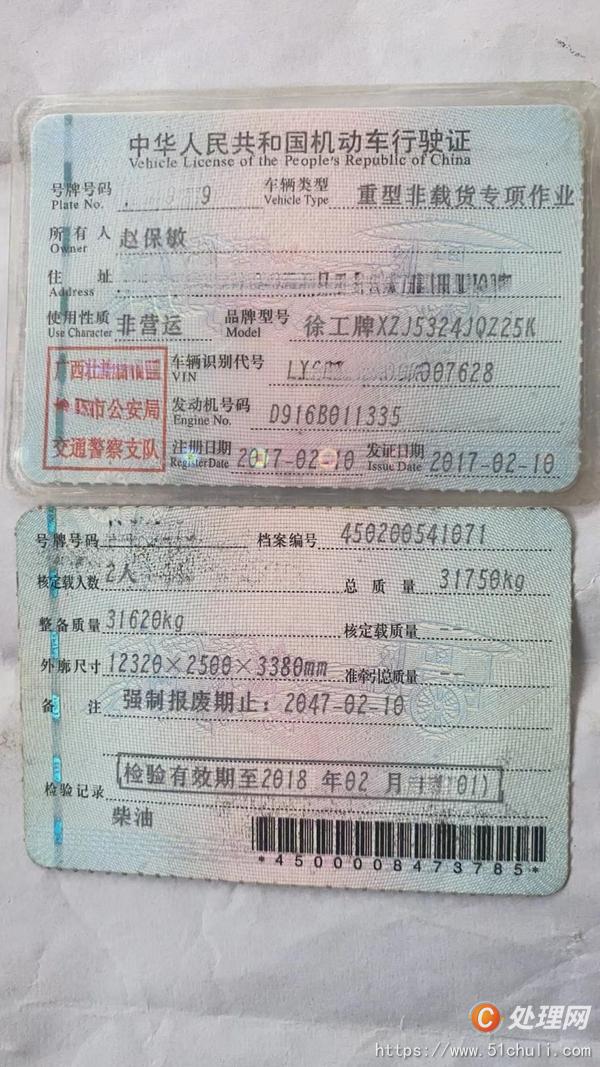 中华人民共和国机动车行驶证
Vehicle License of the People's Republic of China
号牌号码 9 9 车辆类型 重型非载货专项作业
Plate No. Vehicle Type
所有人 赵保敏
Owner
住址
Address
使用性质 非营运 品牌型号 徐工牌XZJ5324JQZ25K
Use Character Model
广西壮 车辆识别代号 LY 007628
VIN
市公安局 发动机号码 D916B011335
Engine No.
交通警察支队 注册日期 2017-02-10 发证日期 2017-02-10
Register Date Issue Date
号牌号码 档案编号 450200541071
核定载人数 2人 总质量 31750kg
整备质量 31620kg 核定载质量 --
外廓尺寸 12320×2500×3380mm 准牵引总质量 --
备注 强制报废期止：2047-02-10
检验记录 检验有效期至2018 年02 月 01)
柴油
*4500008473785*
C 处理网
https://www.51chuli.com